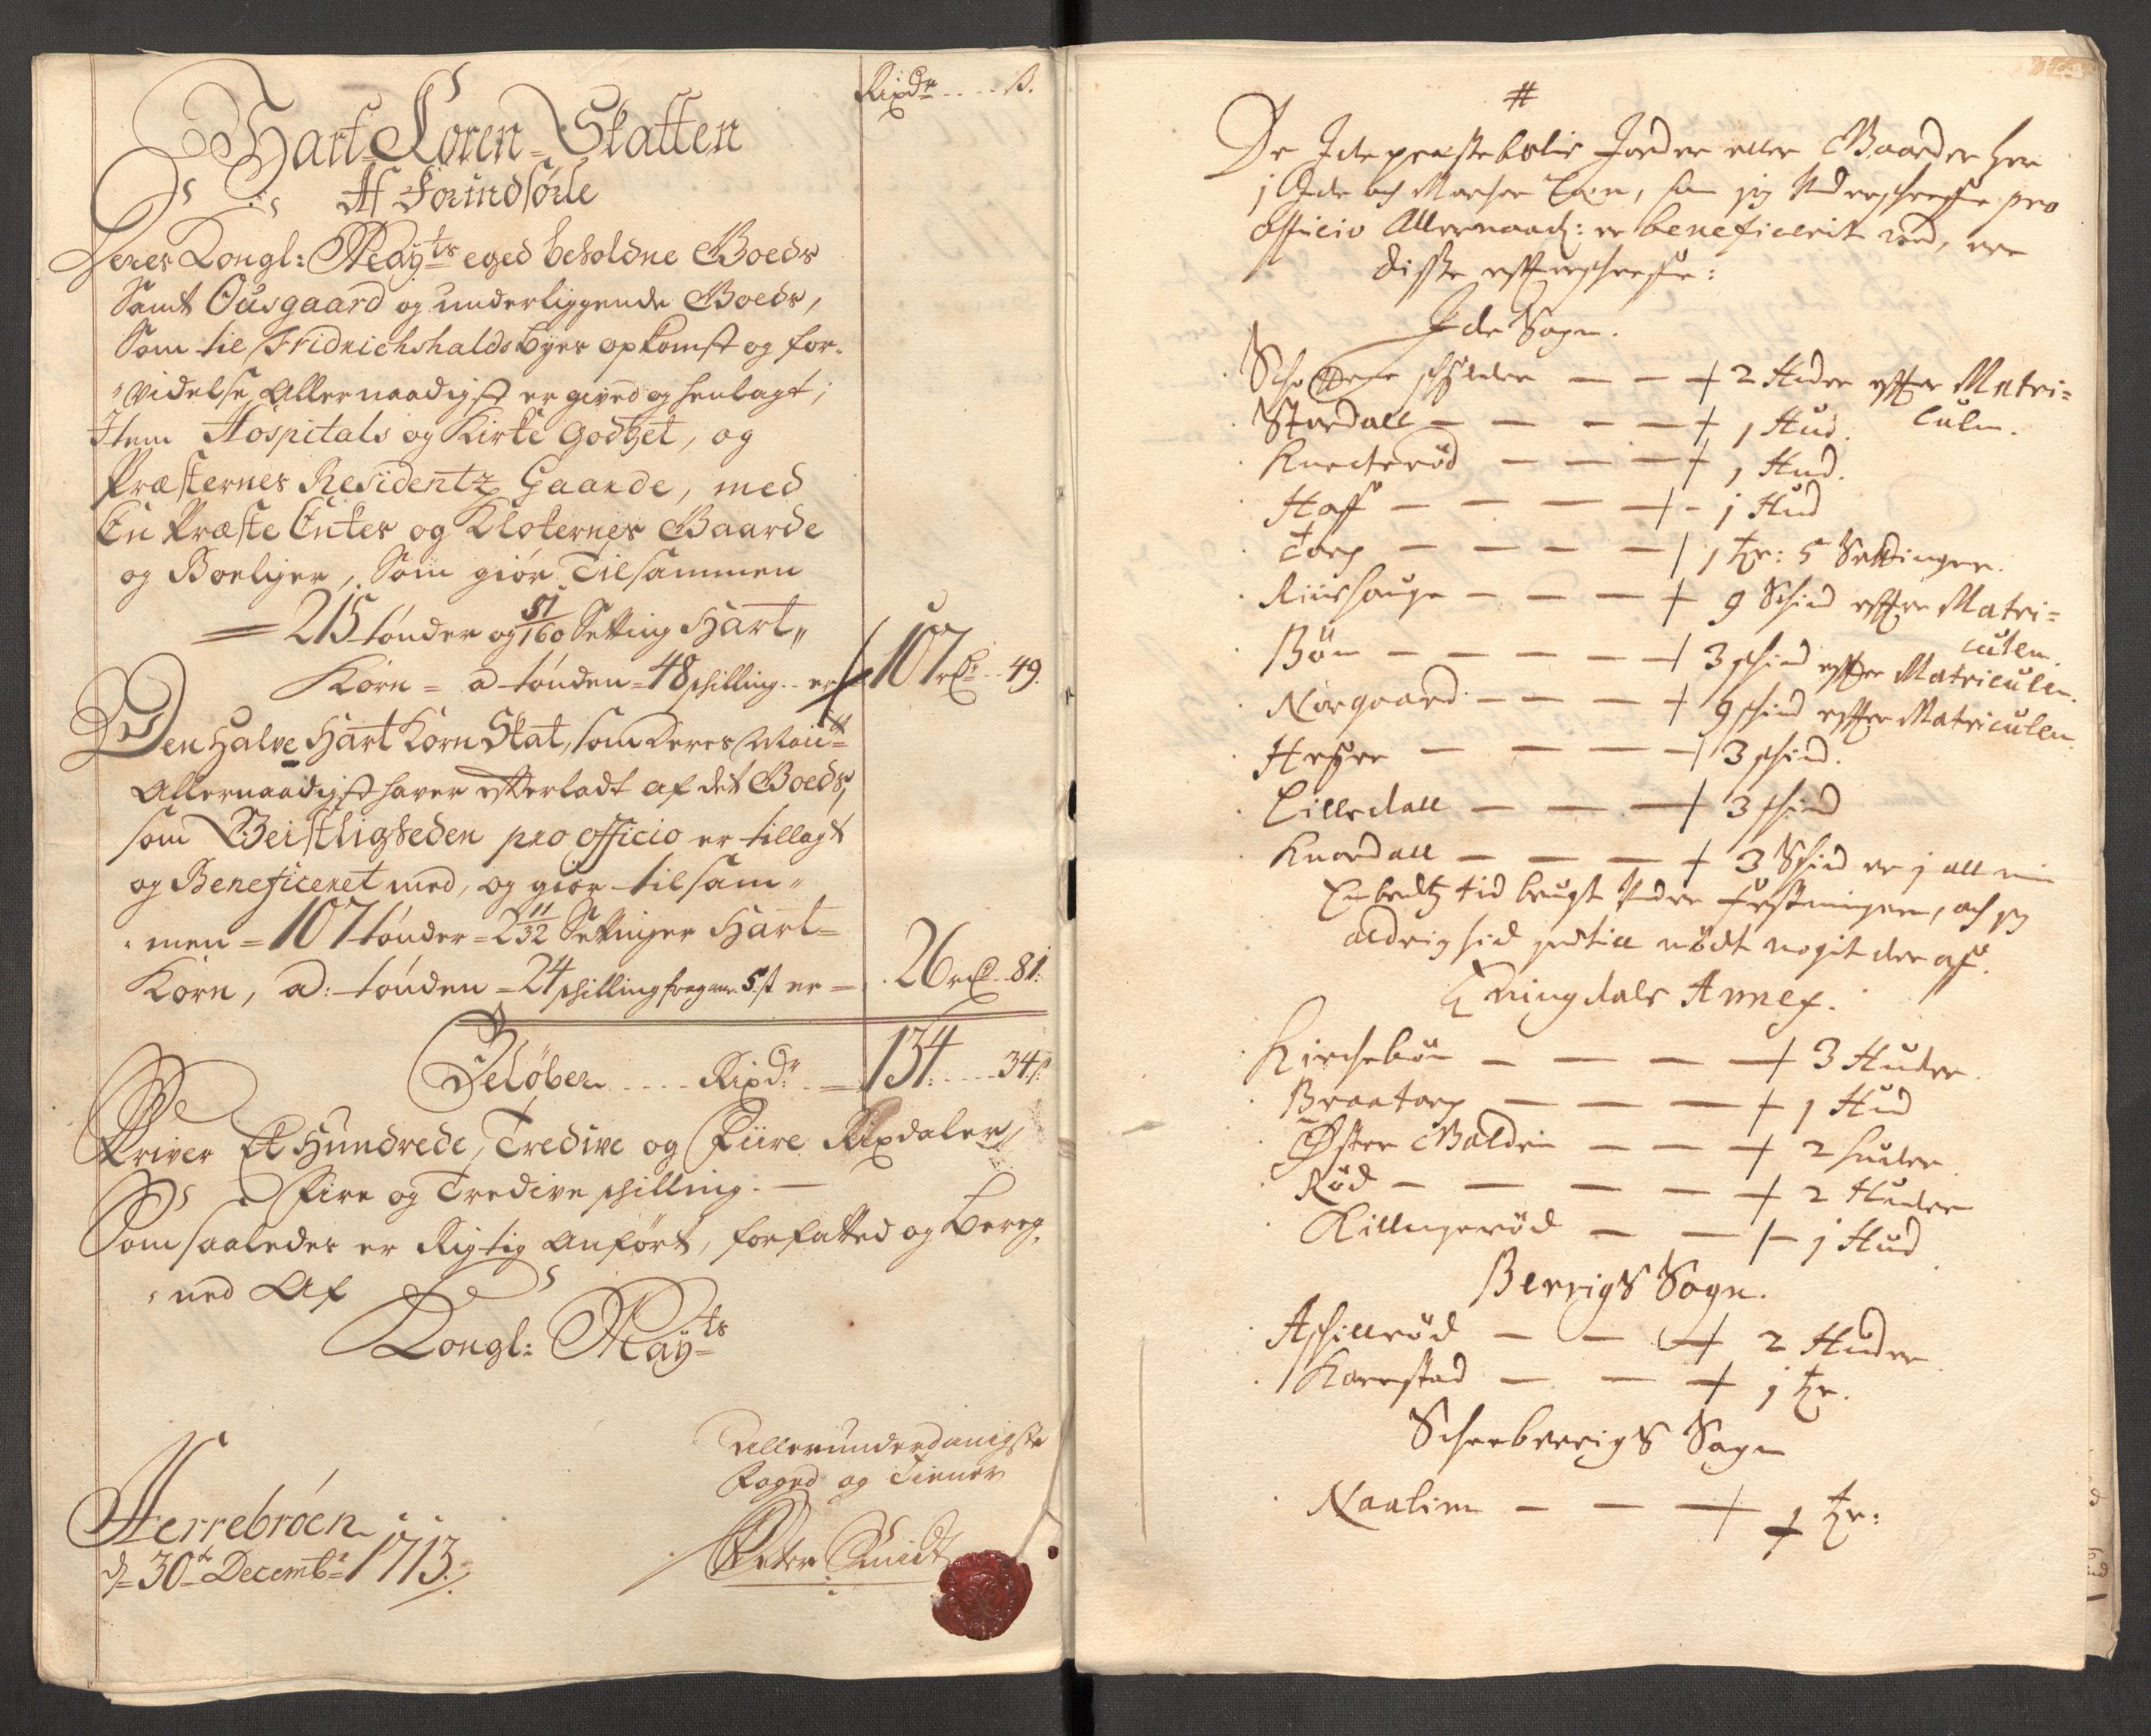 Rixdr ... ß.
Hart Koren Skatten
Af Forindførte
Deres Kongl: Mayts eged beholdne Goeds
Samt Ousgaard og underliggende Goeds,
Som til Fridrichshalds byes opkomst og for-
videlse, Allernaadigst er gived og henlagt;
Item Hospitals og Kirke Godtzet, og
Præsternes Residentz Gaarde, med
En Præste Enkes og Klokernes Gaarde
og Boeliger, Som giør Tilsammen
= 215 tønder og 51/160 Setting Hart"
Korn = a tønden = 48 schilling .. er 107 rdr .. 49.
Den Halve Hart Korn Skat, som Deres Maitt
Allernaadigst haver efterladt af det Goeds,
som Geistligheden pro officio er tillagt
og Beneficeret med, og giør tilsam"
men = 107 tønder = 2 11/32 Settinger Hart=
Korn, a: tønden = 24 schilling er = 26 rdr 81:
Beløber .... Rixdr = 134: .... 34 ß:
Skriver Et Hundrede, Tredive og Fiire Rixdaler
Fire og Tredive schilling. —
Som saaledes er Rigtig Anført, forfatted og bereg-
ned Af
Kongl: Mayts
Allerunderdanigste
Foged og Tiener
Peter
Herrebrøen
d= 30te Decembr 1713.
#
De Ide præstebolis Jorder eller Gaarder her
i Ide och Marcher Leen, som jeg Underschrefne pro
officio Allernaad: er beneficerit med, ere
disse efterschrefne:
Ide Sogn.
schylder — — + 2 Huder efter Matri=
culen.
Stordall — — — + 1 Hud.
Knecterød — — — + 1 Hud.
Hoff — — — — + - 1 Hud
Torp — — — — + 1 tr: 5 Settinger.
Riishauge — — — + 9 Schind efter Matri=
culen.
Bøn — — — — + 3 schind efter Matriculen.
Norgaard — — — + 9 schind efter Matriculen.
— — — + 3 schind.
Lilledall — — — + 3 schind
Knardall — — — + 3 Schind er i all min
Embedtz tid brugt under Festningen, och jeg
aldrig hid indtill nødt nogit der af.
Enningdals Annex.
Kirchebøn — — — + 3 Huder.
Braatorp — — — + 1 Hud
Øster Boldin — — + 2 huder.
Rød — — — — + 2 Huder
Killingerød — — + 1 Hud
Berrigs Sogn.
Aschillrød — — + 2 Huder
Karrestad — — + 1 tr.
Scheeberrigs Sogn
Naalim — — + 1 tr: